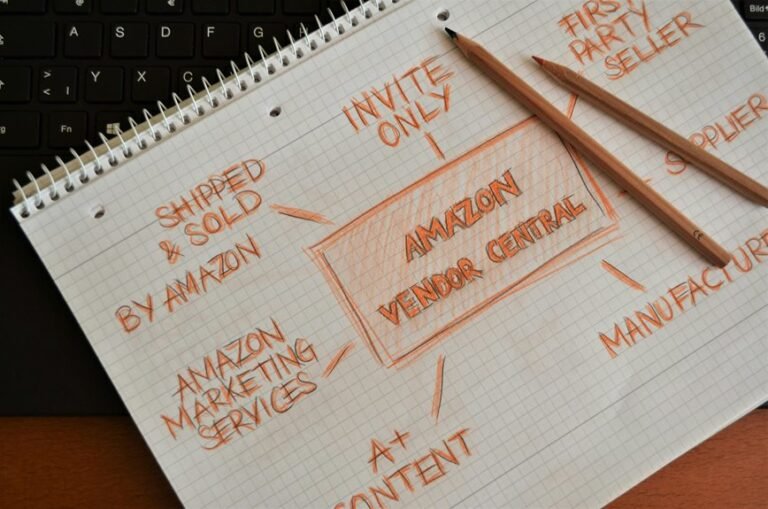 INVITE
ONLY
FIRST
PARTY
SELLER
SUPPLIER
SHIPPED
& SOLD
BY AMAZON
AMAZON
VENDOR CENTRAL
MANUFACTURE
AMAZON
MARKETING
SERVICES
A+
CONTENT
A
S
D
F
G
H
Y
X
C
Fn
Bild
6